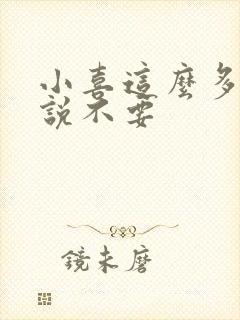 小喜這麼多
說不要
鏡未磨